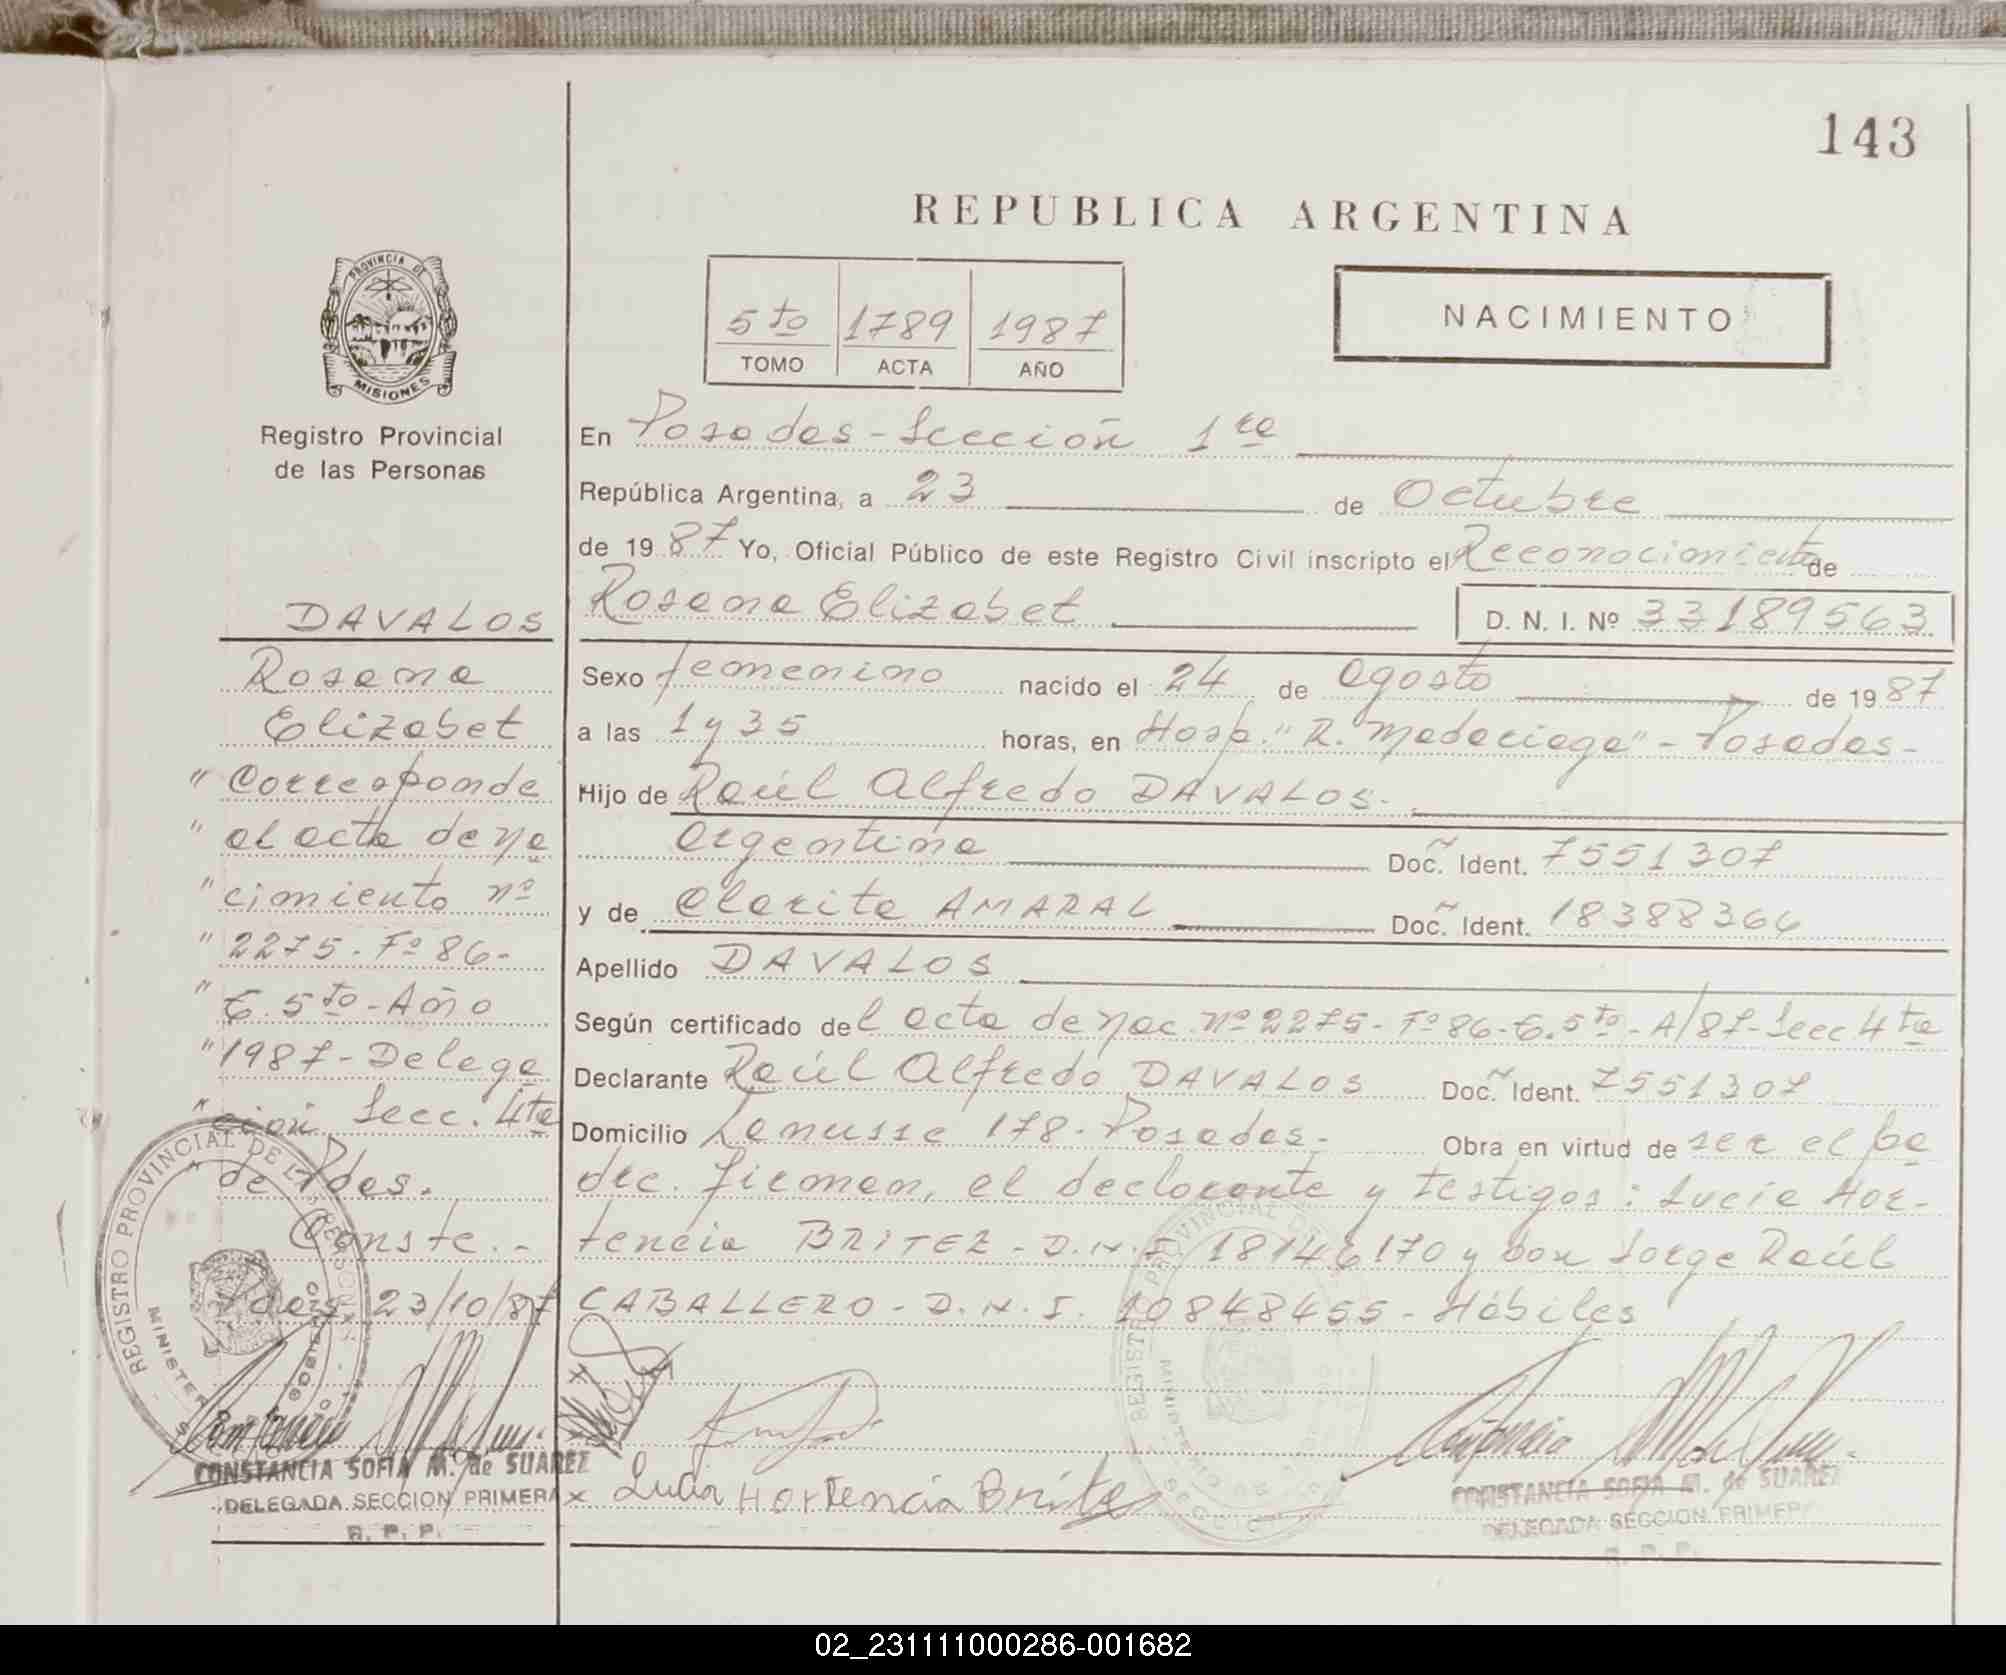 143
REPUBLICA ARGENTINA
NACIMIENTO
5to 1789 1987
TOMO ACTA AÑO
PROVINCIA DE
MISIONES
Registro Provincial
de las Personas
DAVALOS
Rosana
Elizabet
"Corresponde
"al acta de na
"cimiento nº
"2275. Fº 86-
"T. 5to - Año
"1987 - Delega
"ción Secc. 4ta
"de Pdas.
Conste.-
Pdas, 23/10/87
CONSTANCIA SOFIA M. de SUAREZ
DELEGADA SECCION PRIMERA
R. P. P.
En Posadas - Sección 1ra
República Argentina, a 23 de Octubre
de 1987 Yo, Oficial Público de este Registro Civil inscripto el Reconocimiento de
Rosana Elizabet D. N. I. Nº 33189563
Sexo femenino nacido el 24 de agosto de 1987
a las 1 y 35 horas, en Hosp. "R. Madariaga" - Posadas -
Hijo de Raúl Alfredo DAVALOS.
argentina Doc. Ident. 7551307
y de Clarita AMARAL Doc. Ident. 18388364
Apellido DAVALOS
Según certificado del acta de nac. nº 2275 - Fº 86 - T. 5to - A/87 - Secc 4ta
Declarante Raúl Alfredo DAVALOS Doc. Ident. 7551307
Domicilio Lanusse 178 - Posadas - Obra en virtud de ser el pa
dre. firman, el declarante y testigos: Lucía Hor-
tencia BRITEZ - D.N.I. 18146170 y don Jorge Raúl
CABALLERO - D.N.I. 10848455 - Hábiles
x Lucia Hortencia Britez
CONSTANCIA SOFIA M. de SUAREZ
DELEGADA SECCION PRIMERA
R. P. P.
REGISTRO PROVINCIAL DE LAS PERSONAS
02_231111000286-001682